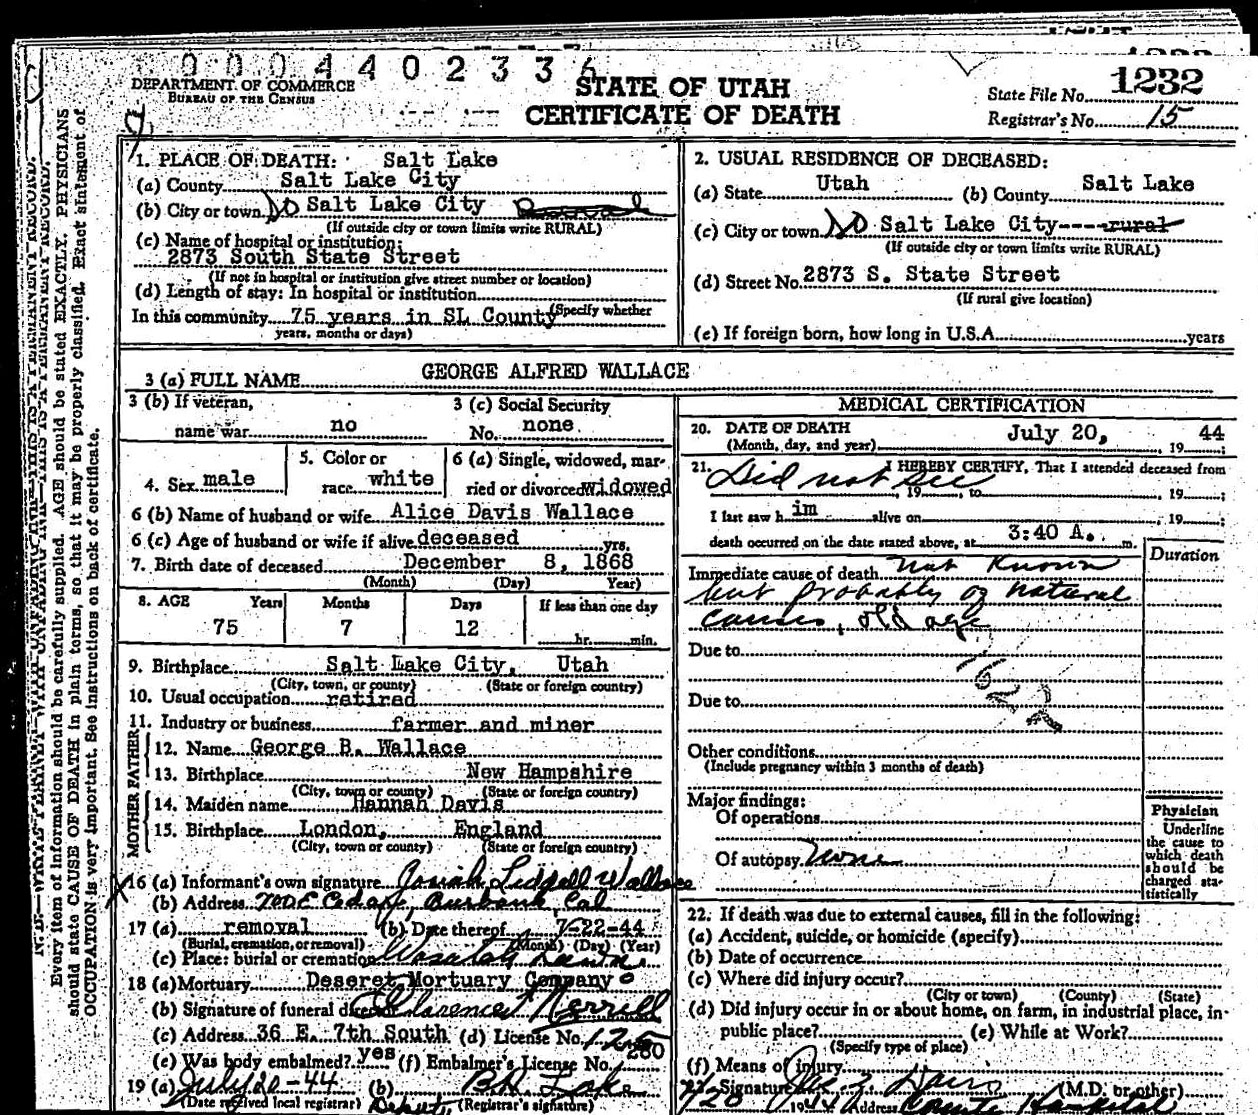 0004402336
DEPARTMENT OF COMMERCE
BUREAU OF THE CENSUS
STATE OF UTAH
CERTIFICATE OF DEATH
State File No. 1232
Registrar's No. 15
N. B.—WRITE PLAINLY WITH UNFADING INK—THIS IS A PERMANENT RECORD.
Every item of information should be carefully supplied. AGE should be stated EXACTLY. PHYSICIANS
should state CAUSE OF DEATH in plain terms, so that it may be properly classified. Exact statement of
OCCUPATION is very important. See instructions on back of certificate.
1. PLACE OF DEATH: Salt Lake
(a) County Salt Lake City
(b) City or town Salt Lake City
(If outside city or town limits write RURAL)
(c) Name of hospital or institution:
2873 South State Street
(If not in hospital or institution give street number or location)
(d) Length of stay: In hospital or institution
(Specify whether
In this community 75 years in SL County
years, months or days)
2. USUAL RESIDENCE OF DECEASED:
(a) State Utah (b) County Salt Lake
(c) City or town Salt Lake City----rural
(If outside city or town limits write RURAL)
(d) Street No. 2873 S. State Street
(If rural give location)
(e) If foreign born, how long in U.S.A. years
3 (a) FULL NAME GEORGE ALFRED WALLACE
3 (b) If veteran,
name war no
3 (c) Social Security
No. none
4. Sex male
5. Color or
race white
6 (a) Single, widowed, mar-
ried or divorced widowed
6 (b) Name of husband or wife Alice Davis Wallace
6 (c) Age of husband or wife if alive deceased yrs.
7. Birth date of deceased December 8, 1868
(Month) (Day) Year)
8. AGE Years Months Days If less than one day
75 7 12 hr. min.
9. Birthplace Salt Lake City, Utah
(City, town, or county) (State or foreign country)
10. Usual occupation retired
11. Industry or business farmer and miner
FATHER
12. Name George B. Wallace
13. Birthplace New Hampshire
(City, town or county) (State or foreign country)
MOTHER
14. Maiden name Hannah Davis
15. Birthplace London, England
(City, town or county) (State or foreign country)
16 (a) Informant's own signature Josiah Liddell Wallace
(b) Address Burbank, Cal
17 (a) removal (b) Date thereof 7-22-44
(Burial, cremation, or removal) (Month) (Day) (Year)
(c) Place: burial or cremation Wasatch Lawns
18 (a) Mortuary Deseret Mortuary Company
(b) Signature of funeral director Clarence Merrill
(c) Address 36 E. 7th South (d) License No. 125
(e) Was body embalmed? yes (f) Embalmer's License No. 280
19 (a) July 20-44 (b) B.H. Lake
(Date received local registrar) Deputy (Registrar's signature)
MEDICAL CERTIFICATION
20. DATE OF DEATH
(Month, day, and year) July 20, 1944;
21. I HEREBY CERTIFY, That I attended deceased from
Did not see
, 19 , to , 19 ;
I last saw him alive on , 19 ;
death occurred on the date stated above, at 3:40 A. m.
Duration
Immediate cause of death not known
but probably of natural
causes, old age
Due to
162
Due to
Other conditions
(Include pregnancy within 3 months of death)
Major findings:
Of operations
Of autopsy None
Physician
Underline
the cause to
which death
should be
charged sta-
tistically
22. If death was due to external causes, fill in the following:
(a) Accident, suicide, or homicide (specify)
(b) Date of occurrence
(c) Where did injury occur?
(City or town) (County) (State)
(d) Did injury occur in or about home, on farm, in industrial place, in
public place? (e) While at Work?
(Specify type of place)
(f) Means of injury
23. Signature Davis (M.D. or other)
7/20 1944 Address County Hospital